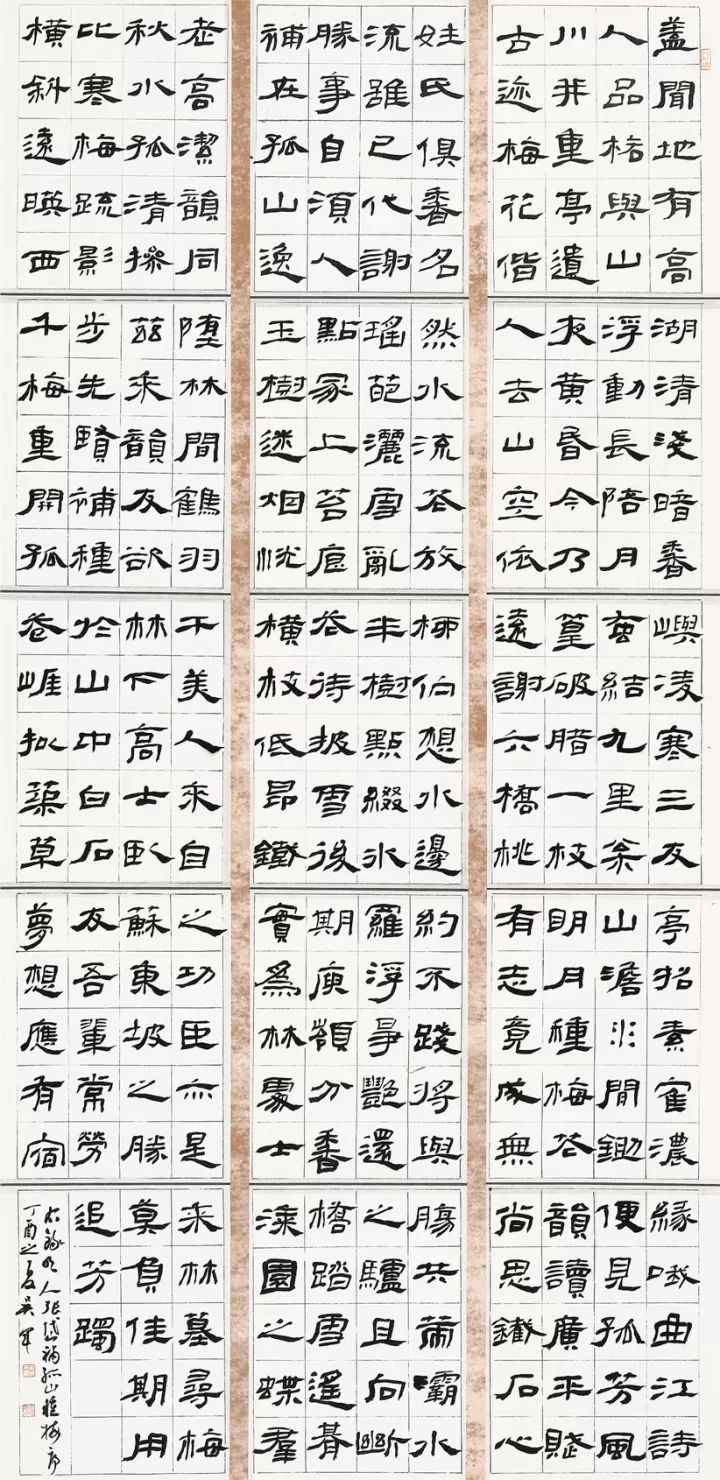 盖聞地有高
人品格與山
川并重亭遺
古迹梅花偕
姓氏俱香名
流雖已代謝
勝事自須人
補在孤山逸
老高潔韻同
秋水孤清操
比寒梅疏影
橫斜遠暎西
湖清淺暗香
浮動長陪月
夜黃昏今乃
人去山空依
然水流花放
瑤葩灑雪亂
點冢上苔痕
玉樹迷烟恍
墮林間鶴羽
茲來韻友欲
步先賢補種
千梅重開孤
嶼凌寒三友
蚤結九里松
篁破腊一枝
遠謝六橋桃
柳佇想水邊
半樹點綴冰
花待披雪後
橫枝低昂鐵
干美人來自
林下高士臥
於山中白石
卷崖拟築草
亭招素寉濃
山澹水間鋤
明月種梅花
有志竟成無
約不踐將與
羅浮爭艷還
期庾嶺分香
實為林處士
之功臣亦是
蘇東坡之勝
友吾輩常勞
夢想應有宿
緣哦曲江詩
便見孤芳風
韻讀廣平賦
尚思鐵石心
腸共策灞水
之驢且向斷
橋踏雪遙
漆園之蝶羣
來林墓尋梅
莫負佳期用
追芳躅
右錄明人張岱補孤山種梅序
丁酉之夏吳軍